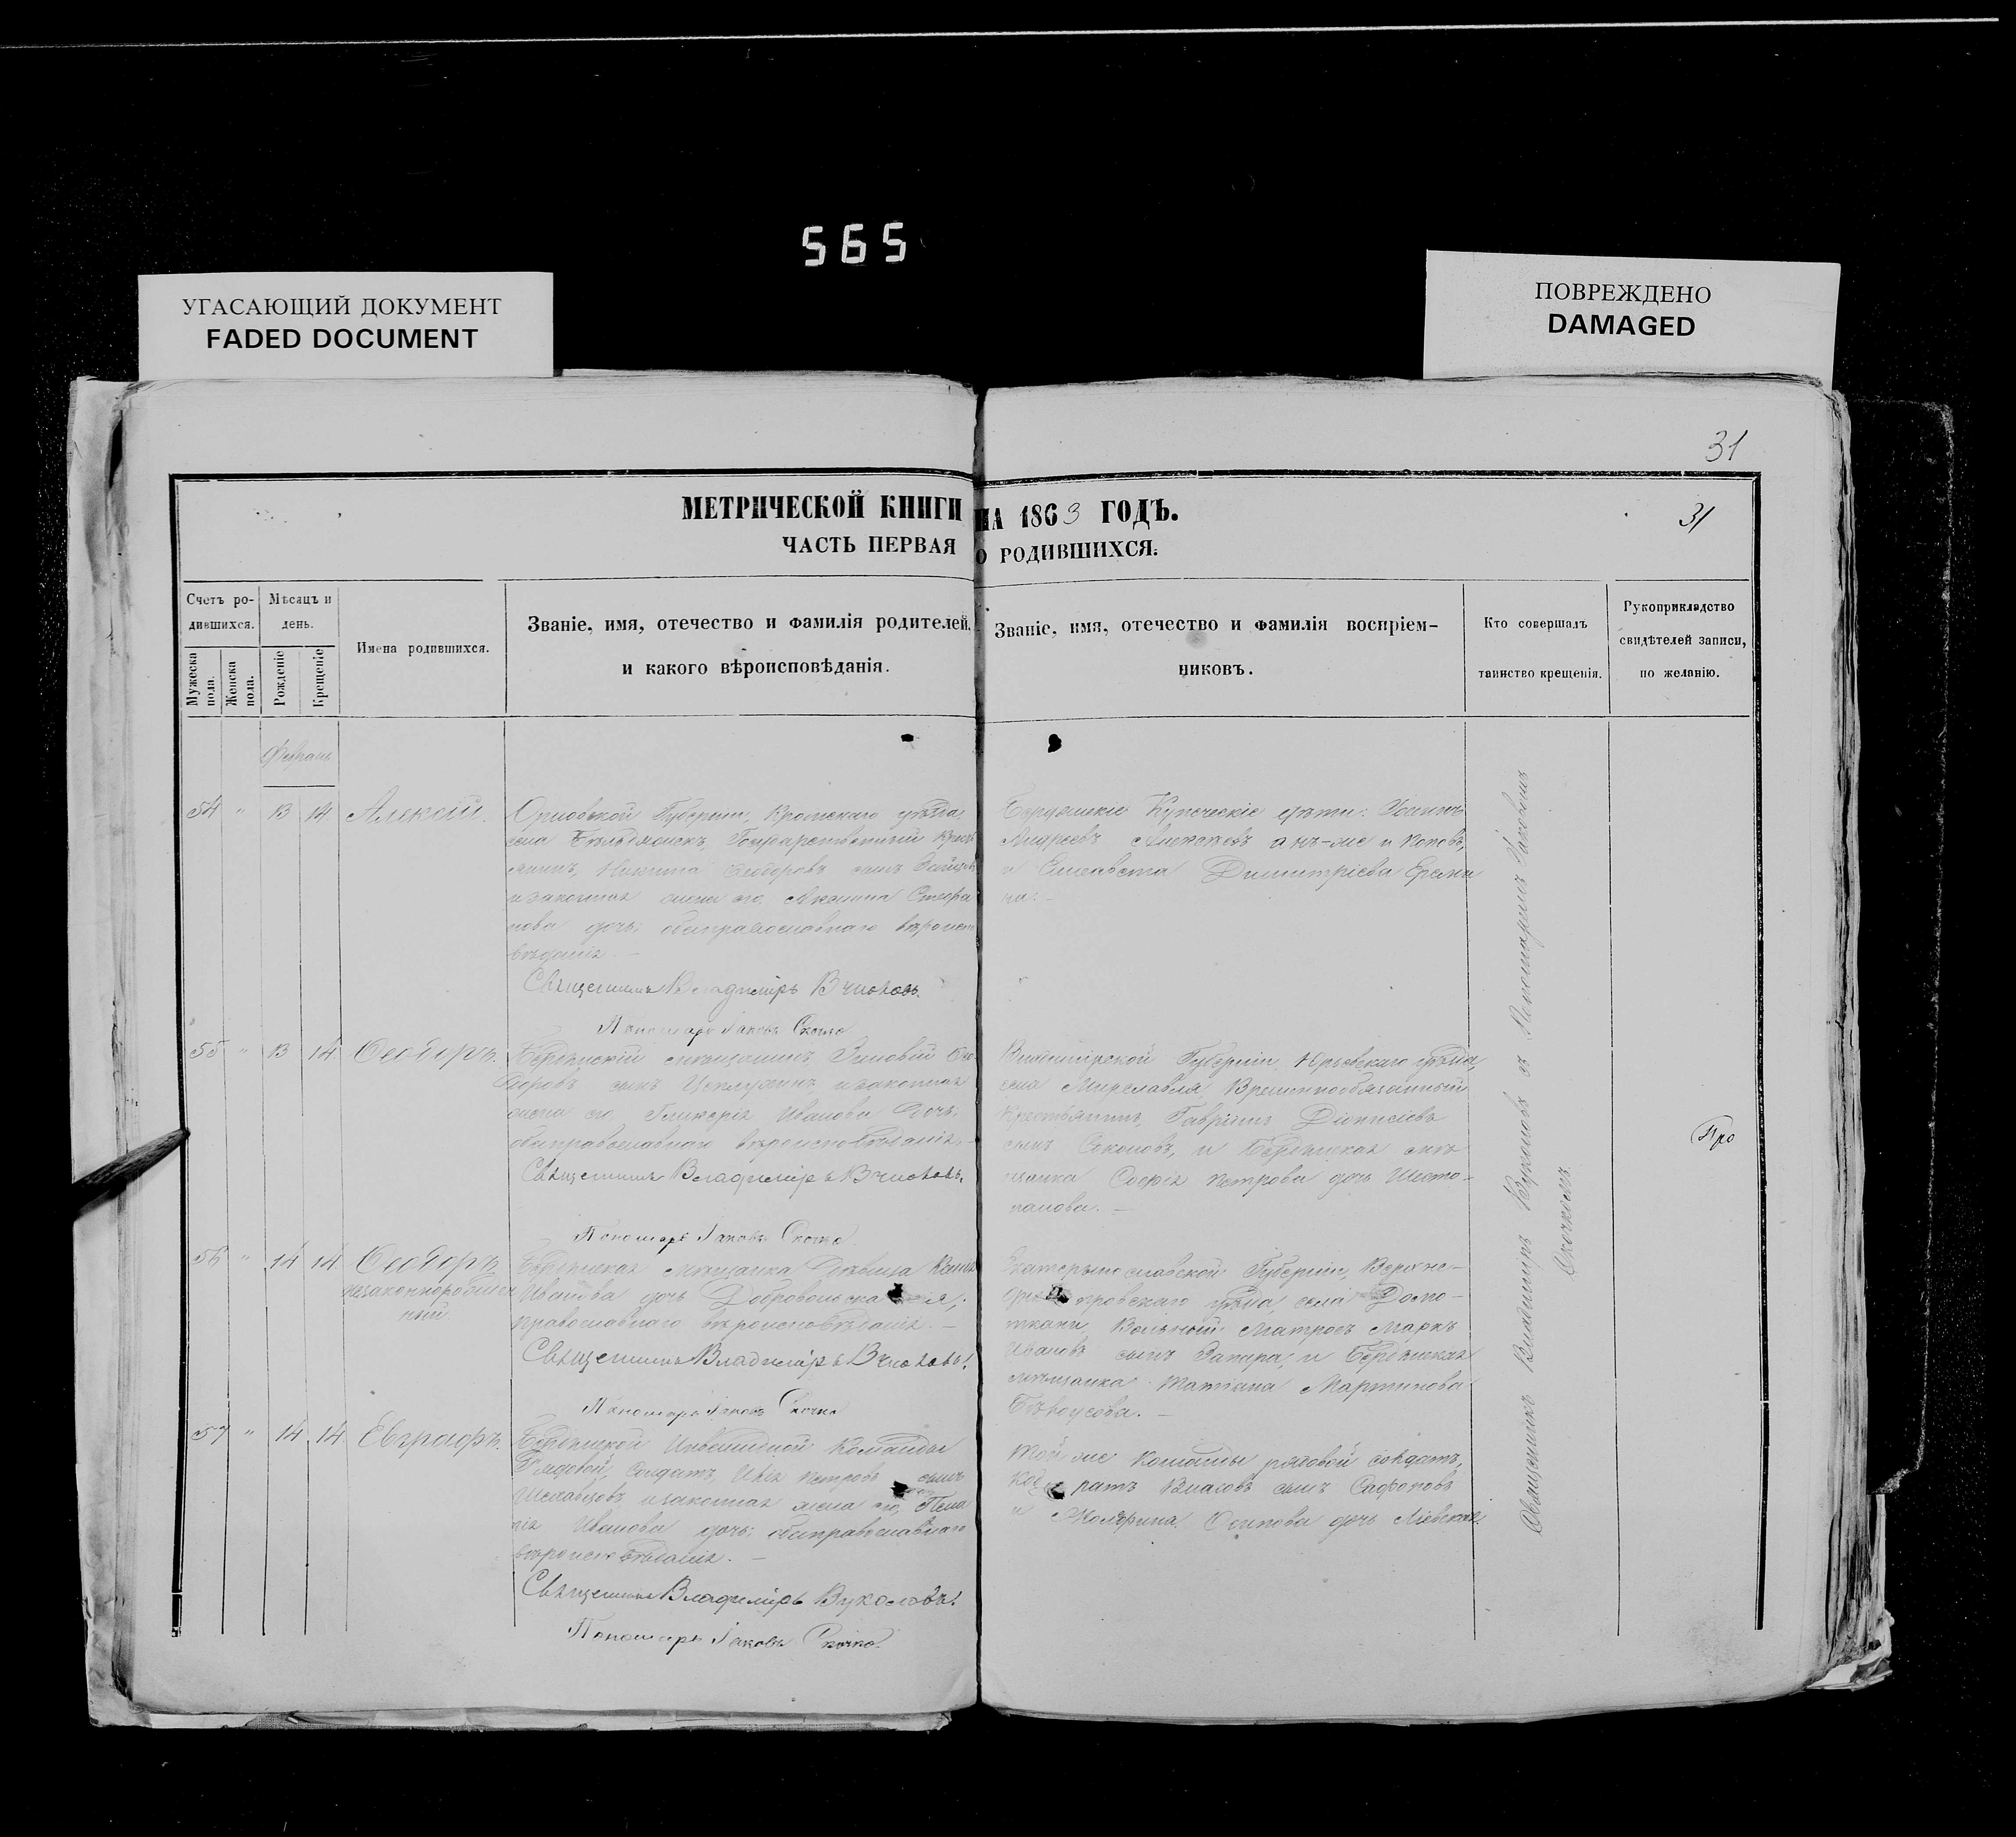 565
УГАСАЮЩИЙ ДОКУМЕНТ
FADED DOCUMENT
ПОВРЕЖДЕНО
DAMAGED
31
МЕТРИЧЕСКОЙ КНИГИ НА 1863 ГОДЪ.
31
ЧАСТЬ ПЕРВАЯ О РОДИВШИХСЯ.
Счетъ ро-
дившихся.
Мужеска пола.
Женска пола.
Мѣсяцъ и
день.
Рожденіе
Крещеніе
Имена родившихся.
Званіе, имя, отечество и фамилія родителей,
и какого вѣроисповѣданія.
Званіе, имя, отечество и фамилія воспріем-
никовъ.
Кто совершалъ
таинство крещенія.
Рукоприкладство
свидѣтелей записи,
по желанію.
Февраль
54 " 13 14 Алексій.
Орловской Губерніи, Кромскаго уѣзда,
села Государственный Кресть
янинъ, Никита Ѳеодоровъ сынъ
и законная жена его, Стефа
нова дочь; оба православнаго вѣроиспо
вѣданія. —
Священникъ Владиміръ Вуколовъ.
Пономарь Іаковъ Скочко
Купеческіе дѣти:
Андреевъ Алексѣевъ и Поповъ,
и Елисавета Димитріева Ереми
на. —
55 " 13 14 Ѳеодоръ.
Бердянскій мѣщанинъ, Зиновій Ѳео
доровъ сынъ и законная
жена его Гликерія Иванова дочь;
оба православнаго вѣроисповѣданія. —
Священникъ Владиміръ Вуколовъ.
Пономарь Іаковъ Скочко
Владимірской Губерніи, Юрьевскаго уѣзда,
села Мирславля, Временнообязанный
Крестьянинъ, Гавріилъ Діонисіевъ
сынъ Соколовъ, и Бердянская мѣ
щанка Софія Петрова дочь Шесто-
палова. —
Про
56 " 14 14 Ѳеодоръ
незаконнорожден
ный.
Бердянская мѣщанка Дѣвица
Иванова дочь Добровольска
православнаго вѣроисповѣданія. —
Священникъ Владиміръ Вуколовъ.
Пономарь Іаковъ Скочко
Екатеринославской Губерніи, Верхне-
днѣпровскаго уѣзда, села Домо-
ткани Вольный Матросъ Маркъ
Ивановъ сынъ Запара, и Бердянская
мѣщанка Татіана Мартинова
Бѣлоусова. —
57 " 14 14 Евграфъ.
Бердянской Инвалидной Команды
Рядовой Солдатъ, Петровъ сынъ
и законная жена его, Пела
гія Иванова дочь; оба православнаго
вѣроисповѣданія. —
Священникъ Владиміръ Вуколовъ.
Пономарь Іаковъ Скочко.
Той же Команды рядовой солдатъ,
Кодратъ Власовъ сынъ Сафоновъ
и Осипова дочь
Священникъ Владиміръ Вуколовъ съ Пономаремъ Іаковомъ
Скочкомъ.